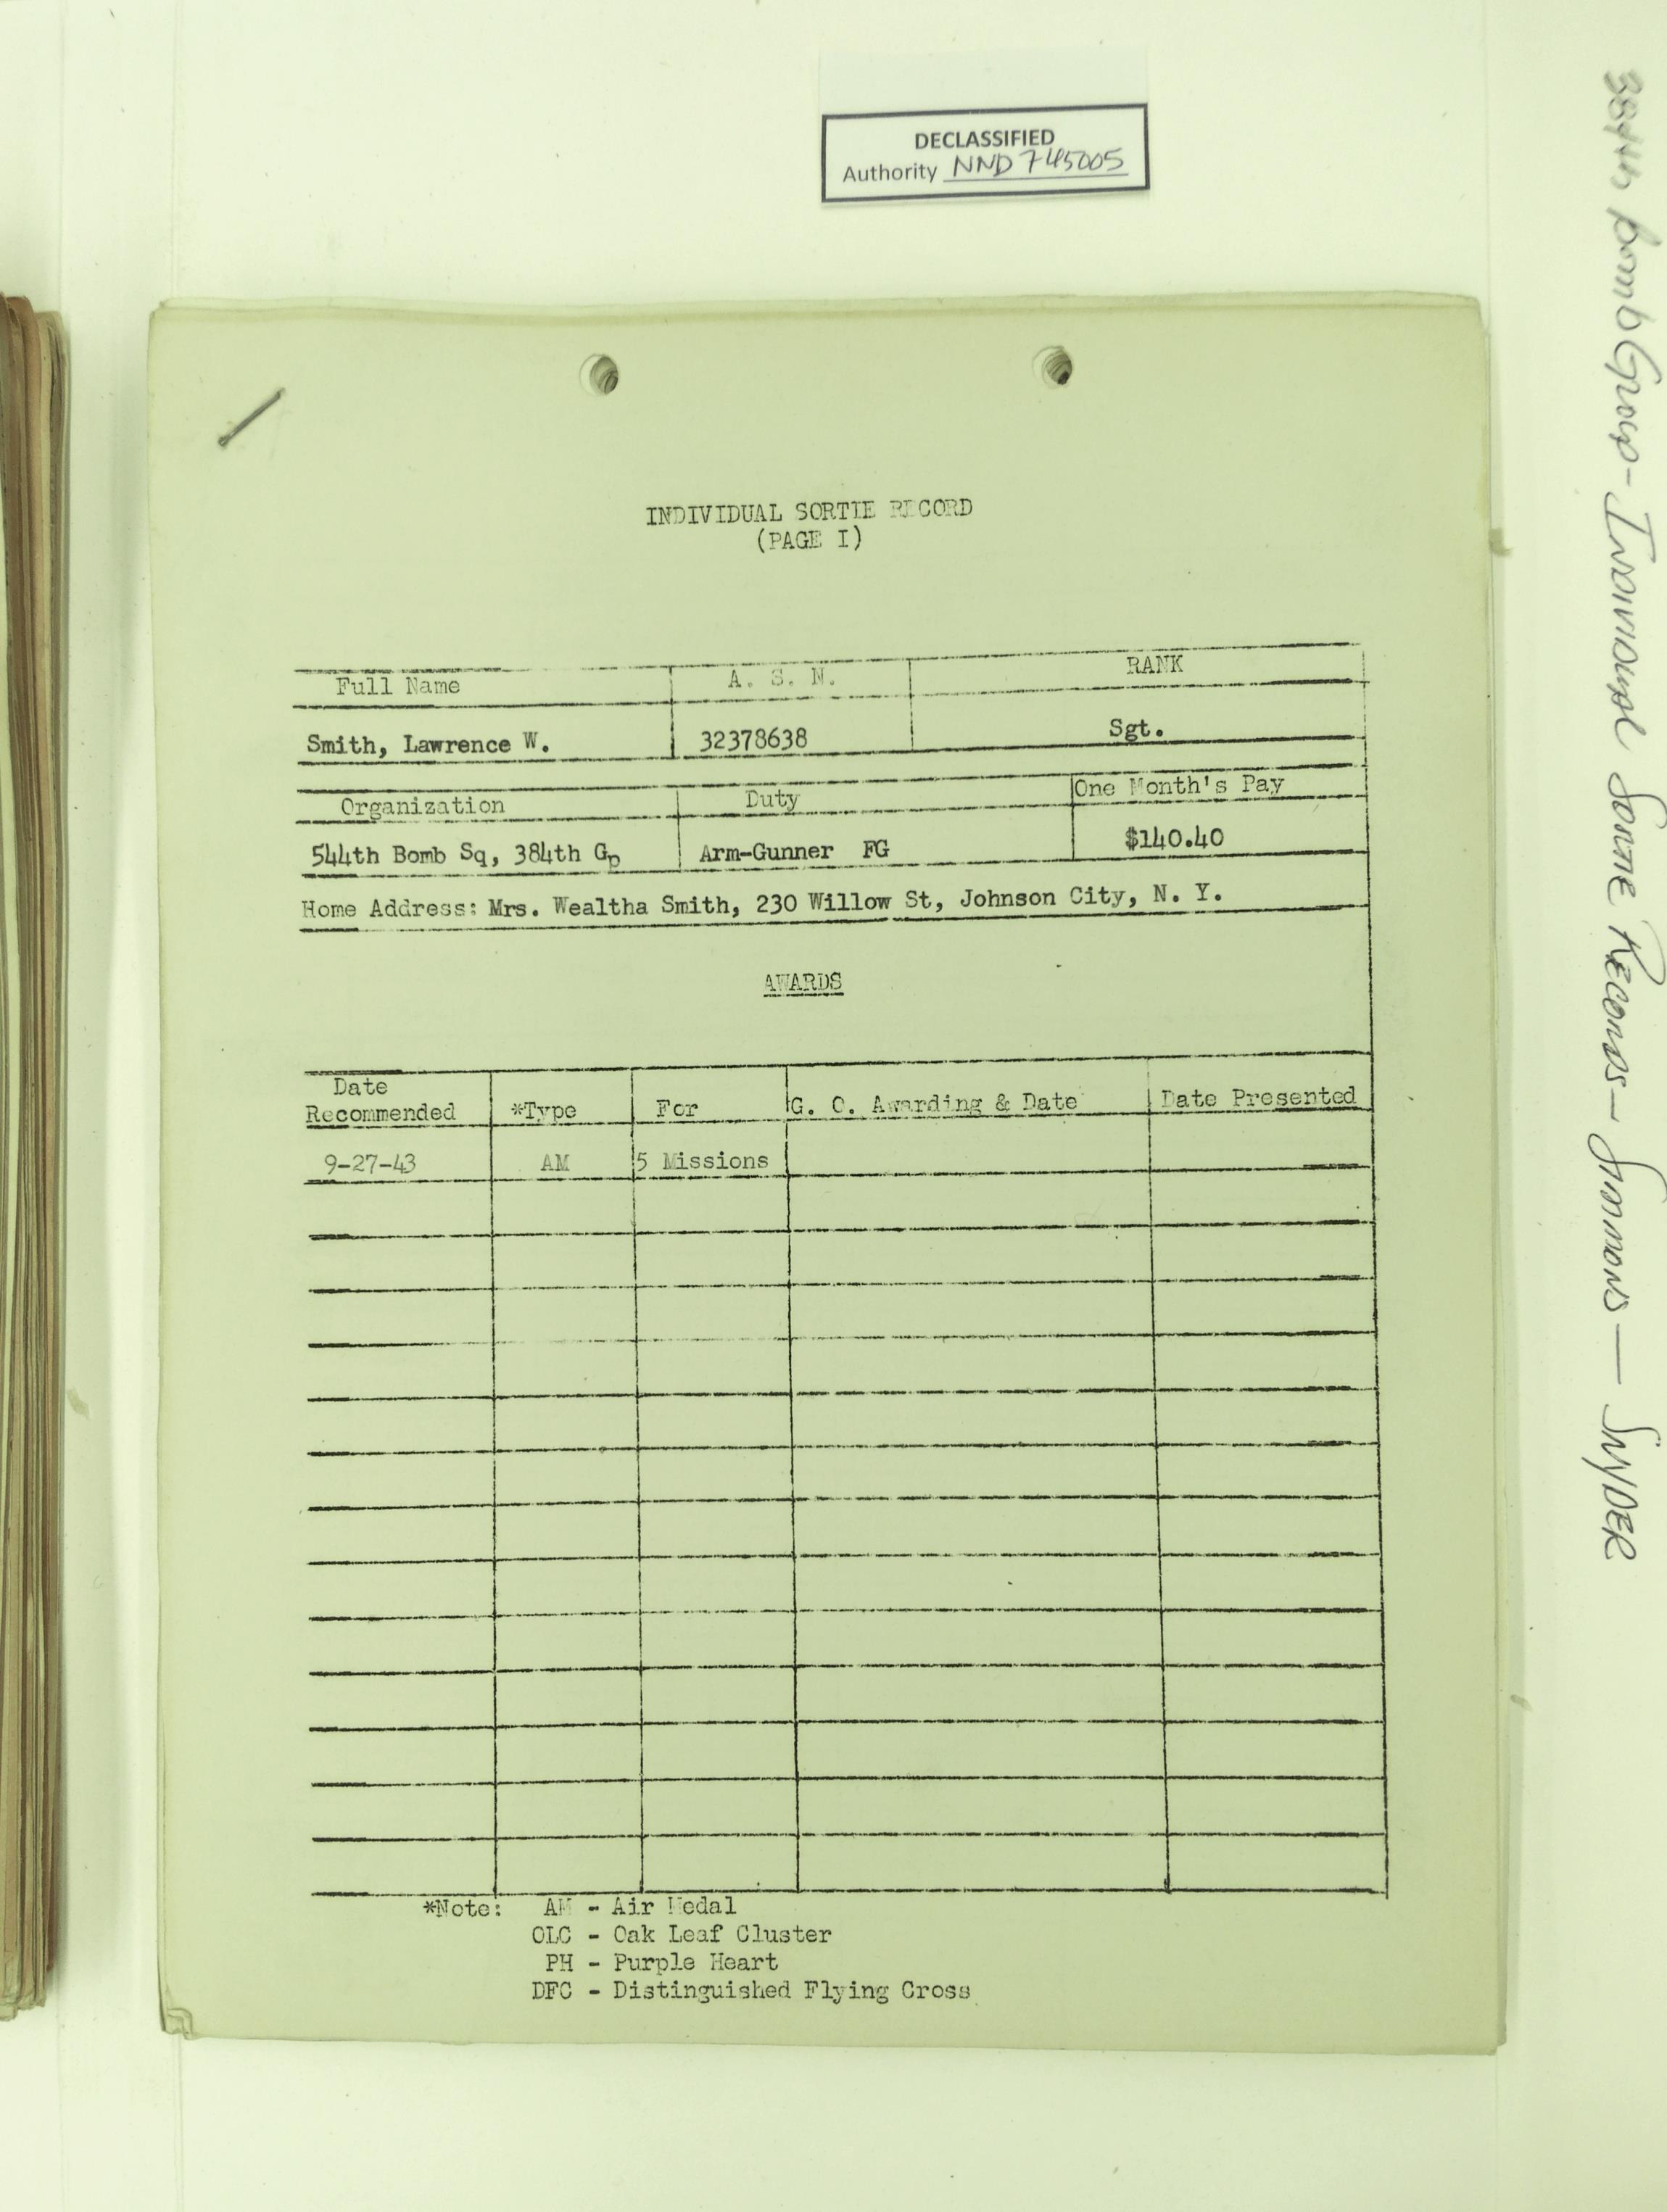 DECLASSIFIED
Authority NND 745005
INDIVIDUAL SORTIE RECORD
(PAGE I)
Full Name A. S. N. RANK
Smith, Lawrence W. 32378638 Sgt.
Organization Duty One Month's Pay
544th Bomb Sq, 384th Gp Arm-Gunner FG $140.40
Home Address: Mrs. Wealtha Smith, 230 Willow St, Johnson City, N. Y.
AWARDS
Date
Recommended *Type For G. O. Awarding & Date Date Presented
9-27-43 AM 5 Missions
*Note: AM - Air Medal
OLC - Oak Leaf Cluster
PH - Purple Heart
DFC - Distinguished Flying Cross
384th Bomb Group - Individual Sortie Records - Simmons - SNYDER